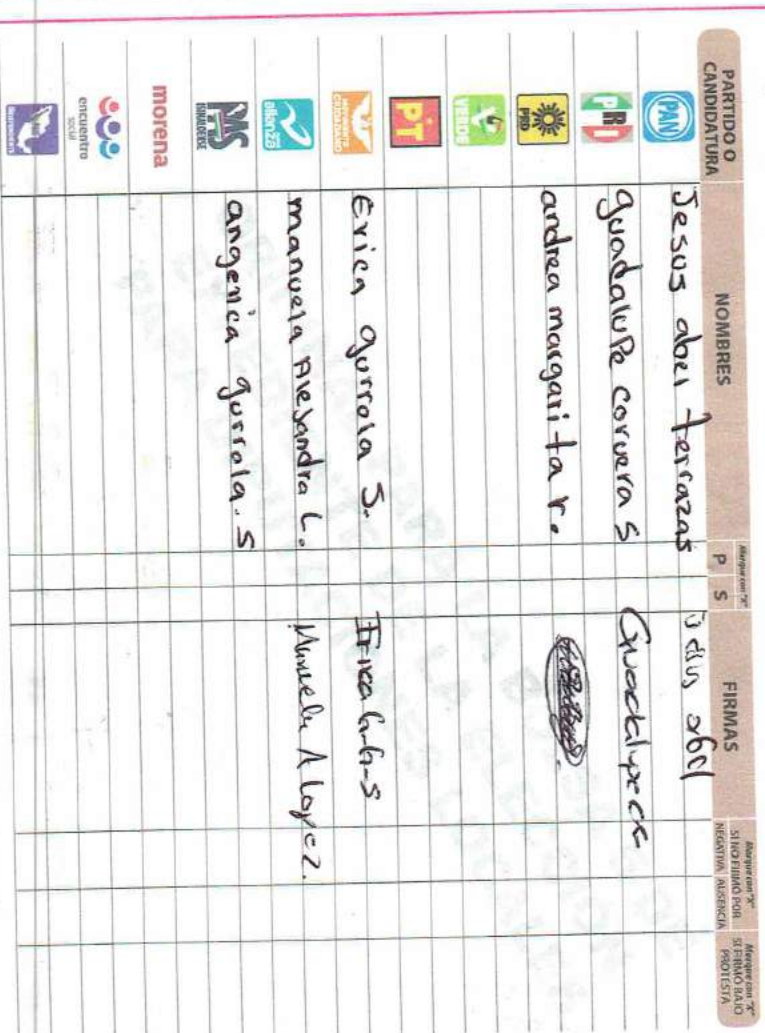 PARTIDO O CANDIDATURA
NOMBRES
Marque con "X"
P S
FIRMAS
Marque con "X" SI NO FIRMÓ POR
NEGATIVA AUSENCIA
Marque con "X" SI FIRMÓ BAJO PROTESTA
PAN Jesus abel terrazas Jesus abel
PRI guadalupe corvera S Guadalupe
PRD andrea margarita r.
VERDE
PT
MOVIMIENTO CIUDADANO Erica gurrola S. Erica G-G-S
nueva alianza manuela Alejandra L. Manuela A Lopez.
PAS SINALOENSE angenica gurrola. S
morena
encuentro social